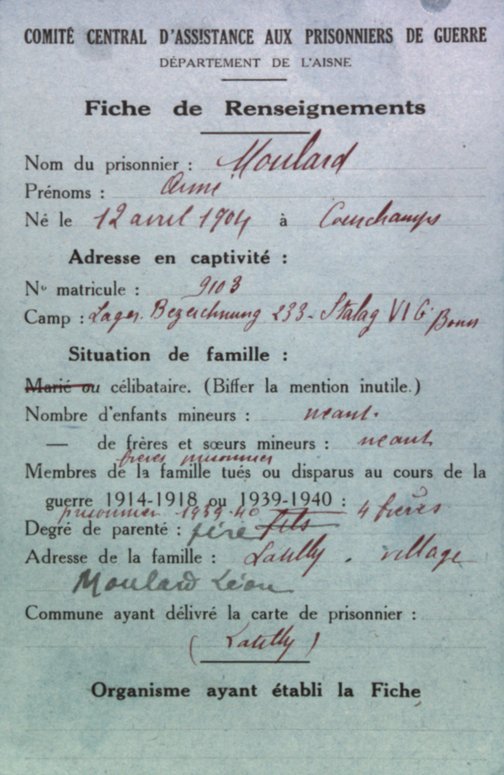 COMITÉ CENTRAL D'ASSISTANCE AUX PRISONNIERS DE GUERRE
DÉPARTEMENT DE L'AISNE
Fiche de Renseignements
Nom du prisonnier : Moulard
Prénoms :
Né le 12 avril 1904 à Courchamps
Adresse en captivité :
N° matricule : 9103
Camp : Lager. Bezeichnung 233 - Stalag VI G Bonn
Situation de famille :
Marié ou célibataire. (Biffer la mention inutile.)
Nombre d'enfants mineurs : néant.
— de frères et sœurs mineurs : néant
frères prisonnier
Membres de la famille tués ou disparus au cours de la
guerre 1914-1918 ou 1939-1940 :
prisonnier 1939-40 4 frères
Degré de parenté : père fils
Adresse de la famille : Latilly. village
Moulard Léon
Commune ayant délivré la carte de prisonnier :
(Latilly)
Organisme ayant établi la Fiche